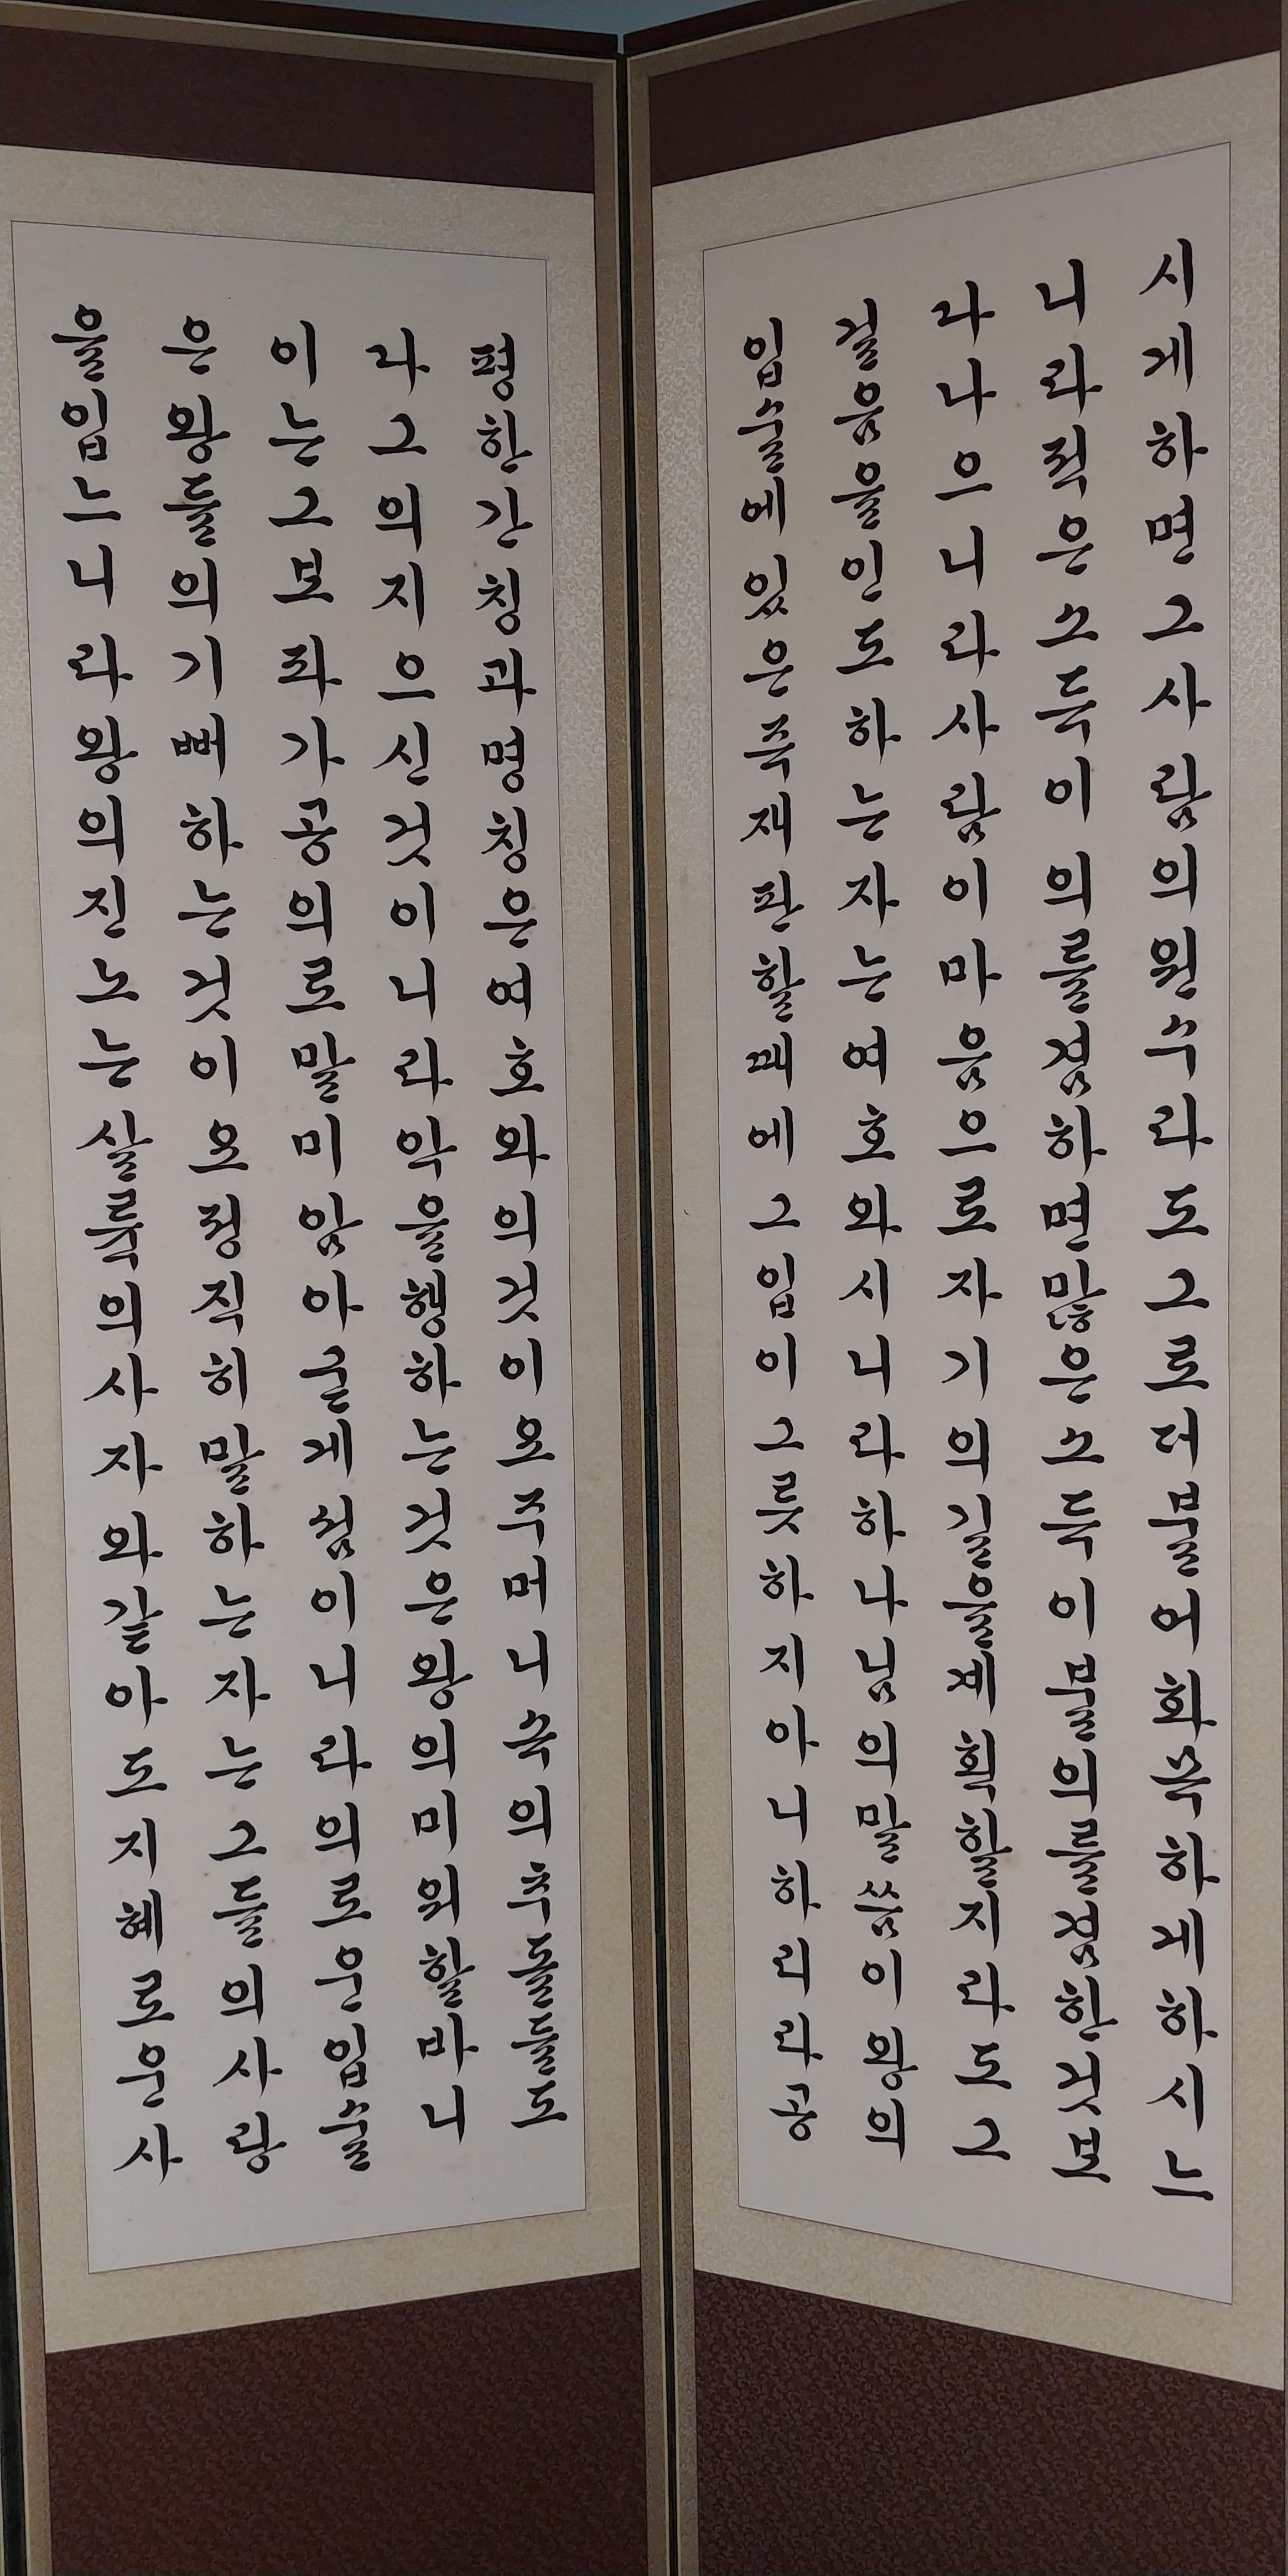 시게하면그사람의원수라도그로더불어화목하게하시느
니라적은소득이의를겸하면많은소득이불의를겸한것보
다나으니라사람이마음으로자기의길을계획할지라도그
걸음을인도하는자는여호와시니라하나님의말씀이왕의
입술에있은즉재판할때에그입이그릇하지아니하리라공
평한간칭과명칭은여호와의것이요주머니속의추돌들도
다그의지으신것이니라악을행하는것은왕의미워할바니
이는그보좌가공의로말미암아굳게섬이니라의로운입술
은왕들의기뻐하는것이요정직히말하는자는그들의사랑
을입느니라왕의진노는살륙의사자와같아도지혜로운사